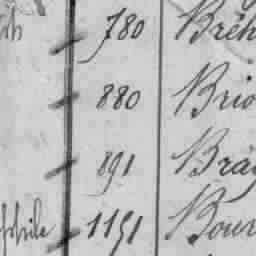 780 Bréh
880 Brio
891 Bra
phile 1151 Bour